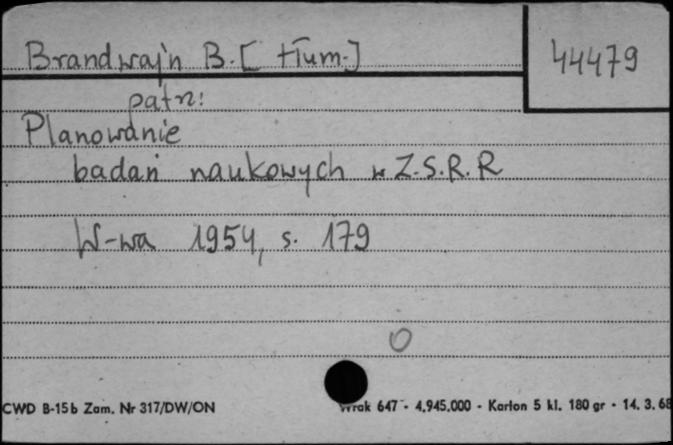 Brandwajn B. [tłum.]
44479
patrz:
Planowanie
badań naukowych w Z.S.R.R
W-wa 1954, s. 179
0
CWD B-15b Zam. Nr 317/DW/ON
647 - 4.945.000 - Karton 5 kl. 180 gr - 14. 3. 68